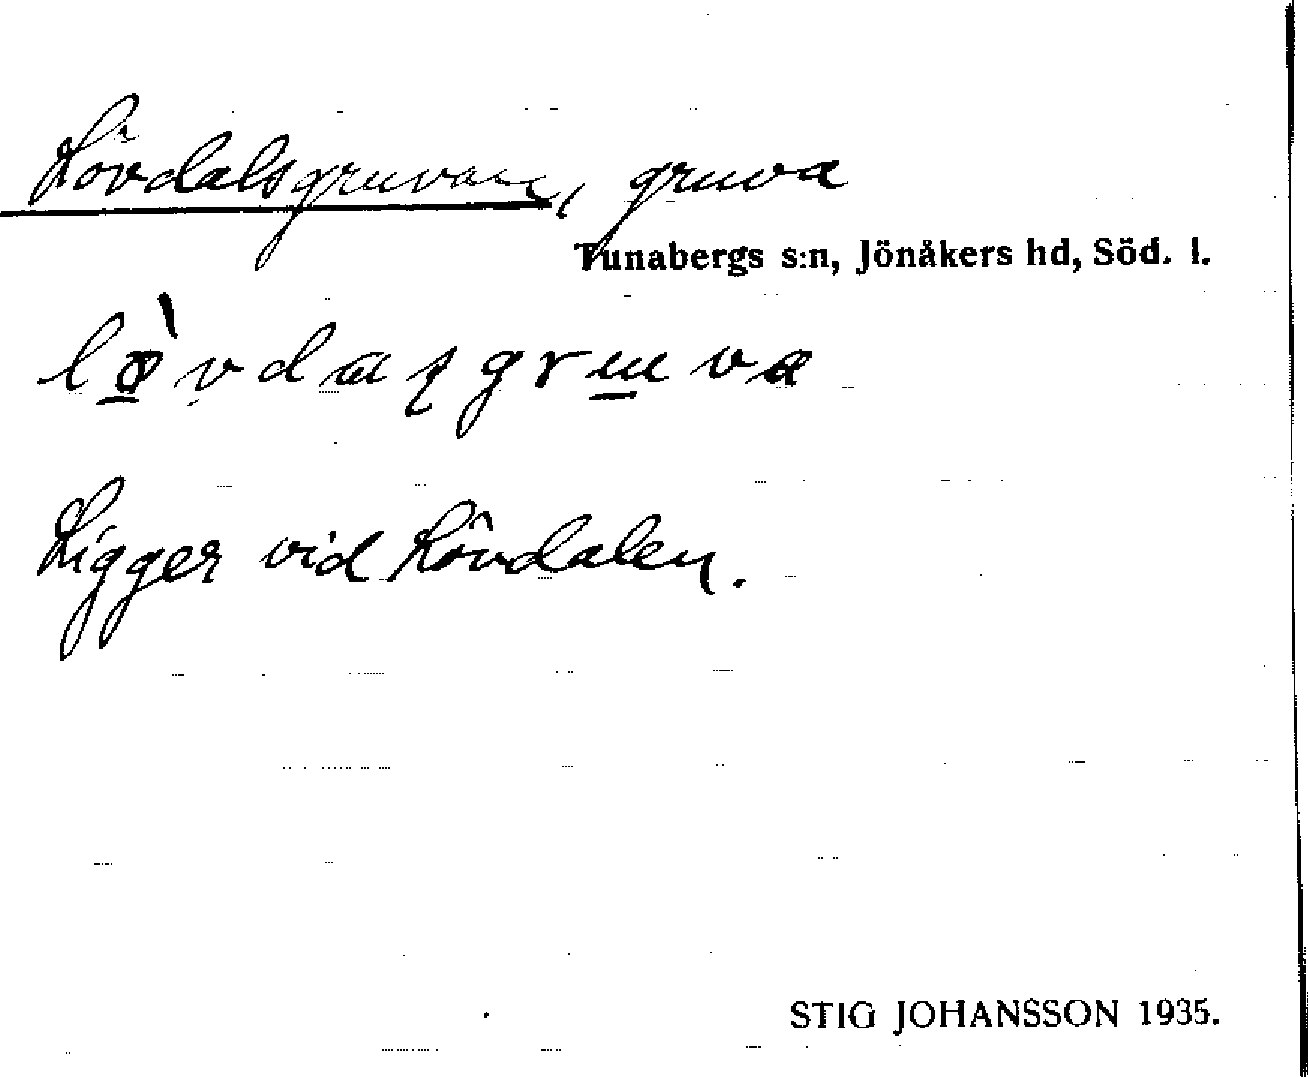 Lövdalsgruvan, gruva
Tunabergs s:n, Jönåkers hd, Söd. l.
Ligger vid Lövdalen.
STIG JOHANSSON 1935.